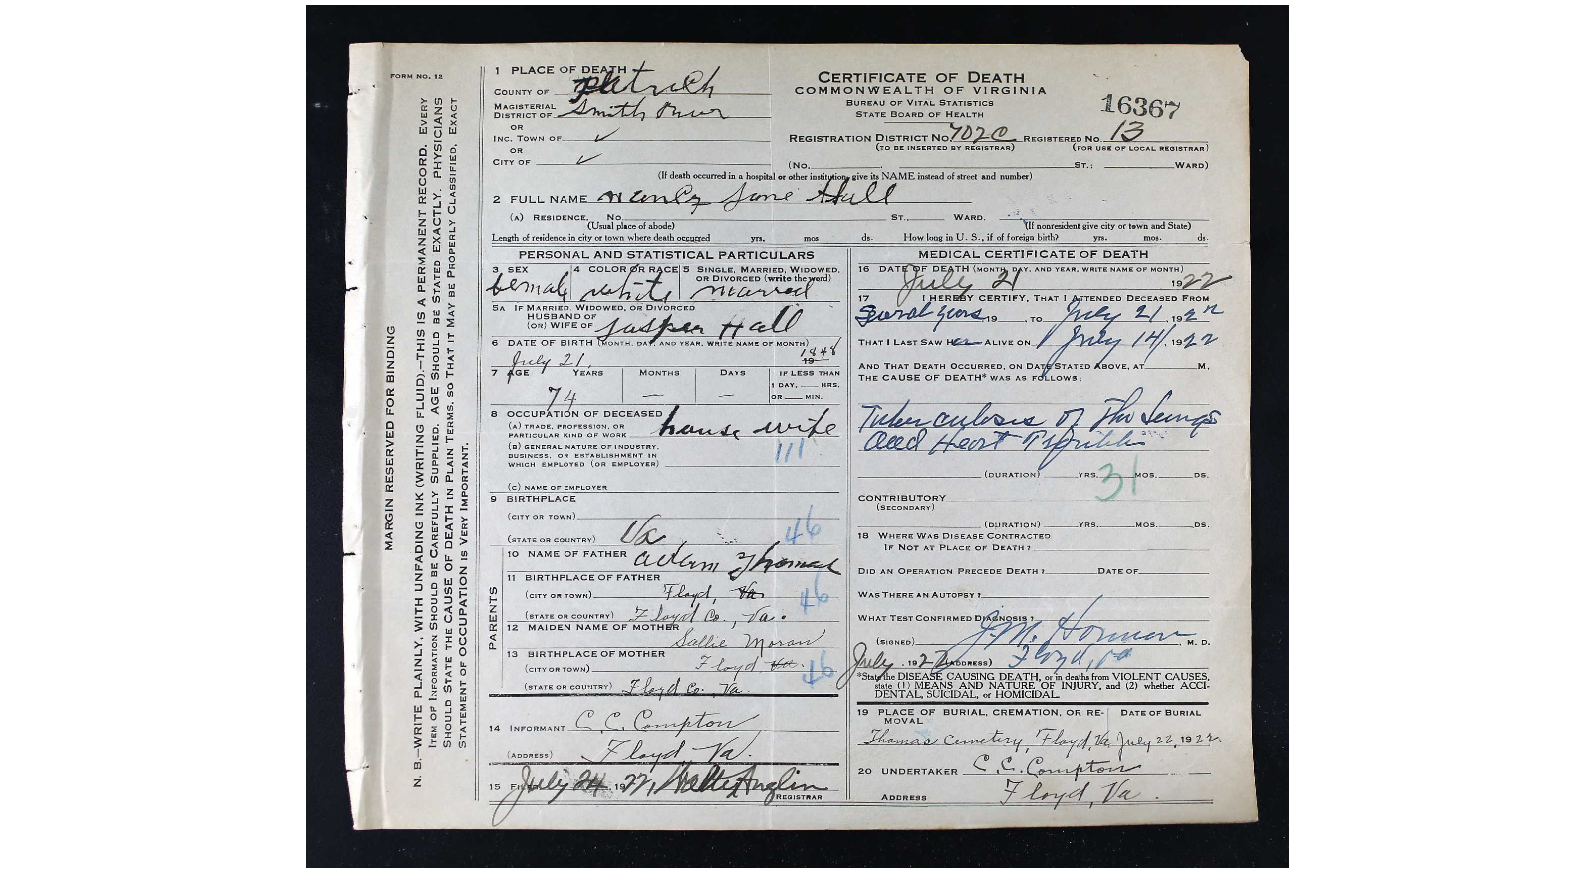 FORM NO. 12
MARGIN RESERVED FOR BINDING
N. B.—WRITE PLAINLY, WITH UNFADING INK (WRITING FLUID).—THIS IS A PERMANENT RECORD. EVERY
ITEM OF INFORMATION SHOULD BE CAREFULLY SUPPLIED. AGE SHOULD BE STATED EXACTLY. PHYSICIANS
SHOULD STATE THE CAUSE OF DEATH IN PLAIN TERMS, SO THAT IT MAY BE PROPERLY CLASSIFIED. EXACT
STATEMENT OF OCCUPATION IS VERY IMPORTANT.
1 PLACE OF DEATH
COUNTY OF Patrick
MAGISTERIAL
DISTRICT OF Smith River
OR
INC. TOWN OF ✓
OR
CITY OF ✓
CERTIFICATE OF DEATH
COMMONWEALTH OF VIRGINIA
BUREAU OF VITAL STATISTICS
STATE BOARD OF HEALTH
16367
REGISTRATION DISTRICT NO. 702C REGISTERED NO. 13
(TO BE INSERTED BY REGISTRAR) (FOR USE OF LOCAL REGISTRAR)
(NO. ST.; WARD)
(If death occurred in a hospital or other institution, give its NAME instead of street and number)
2 FULL NAME Jane Hall
(A) RESIDENCE. No. ST., WARD.
(Usual place of abode) (If nonresident give city or town and State)
Length of residence in city or town where death occurred yrs. mos ds. How long in U. S., if of foreign birth? yrs. mos. ds.
PERSONAL AND STATISTICAL PARTICULARS
3 SEX 4 COLOR OR RACE 5 SINGLE, MARRIED, WIDOWED,
OR DIVORCED (write the word)
female white married
5A IF MARRIED, WIDOWED, OR DIVORCED
HUSBAND OF
(OR) WIFE OF Jasper Hall
6 DATE OF BIRTH (MONTH, DAY, AND YEAR, WRITE NAME OF MONTH)
July 21, 1848
19
7 AGE YEARS MONTHS DAYS IF LESS THAN
1 DAY, HRS.
OR MIN.
74 — —
8 OCCUPATION OF DECEASED
(A) TRADE, PROFESSION, OR
PARTICULAR KIND OF WORK house wife
(B) GENERAL NATURE OF INDUSTRY,
BUSINESS, OR ESTABLISHMENT IN
WHICH EMPLOYED (OR EMPLOYER)
111
(C) NAME OF EMPLOYER
9 BIRTHPLACE
(CITY OR TOWN)
(STATE OR COUNTRY) Va 46
PARENTS
10 NAME OF FATHER Adam Thomas
11 BIRTHPLACE OF FATHER
(CITY OR TOWN) Floyd, Va. 46
(STATE OR COUNTRY) Floyd Co., Va.
12 MAIDEN NAME OF MOTHER
Sallie Moran
13 BIRTHPLACE OF MOTHER
(CITY OR TOWN) Floyd Va. 46
(STATE OR COUNTRY) Floyd Co. Va.
14 INFORMANT C. C. Compton
(ADDRESS) Floyd Va.
15 FILED July 24 1922, Walter Anglin
REGISTRAR
MEDICAL CERTIFICATE OF DEATH
16 DATE OF DEATH (MONTH, DAY, AND YEAR, WRITE NAME OF MONTH)
July 21 1922
17 I HEREBY CERTIFY, THAT I ATTENDED DECEASED FROM
19 , TO July 21, 1922
THAT I LAST SAW HER ALIVE ON July 14, 1922
AND THAT DEATH OCCURRED, ON DATE STATED ABOVE, AT M.
THE CAUSE OF DEATH* WAS AS FOLLOWS:
Tuberculosis of The Lungs
and Heart
(DURATION) YRS. MOS. DS.
31
CONTRIBUTORY
(SECONDARY)
(DURATION) YRS. MOS. DS.
18 WHERE WAS DISEASE CONTRACTED
IF NOT AT PLACE OF DEATH?
DID AN OPERATION PRECEDE DEATH? DATE OF
WAS THERE AN AUTOPSY?
WHAT TEST CONFIRMED DIAGNOSIS?
(SIGNED) J. M. M. D.
July , 1922 (ADDRESS) Floyd, Va
*State the DISEASE CAUSING DEATH, or in deaths from VIOLENT CAUSES,
state (1) MEANS AND NATURE OF INJURY, and (2) whether ACCI-
DENTAL, SUICIDAL, or HOMICIDAL.
19 PLACE OF BURIAL, CREMATION, OR RE- DATE OF BURIAL
MOVAL
Thomas Cemetery, Floyd, Va. July 22, 1922.
20 UNDERTAKER C. C. Compton
ADDRESS Floyd, Va.